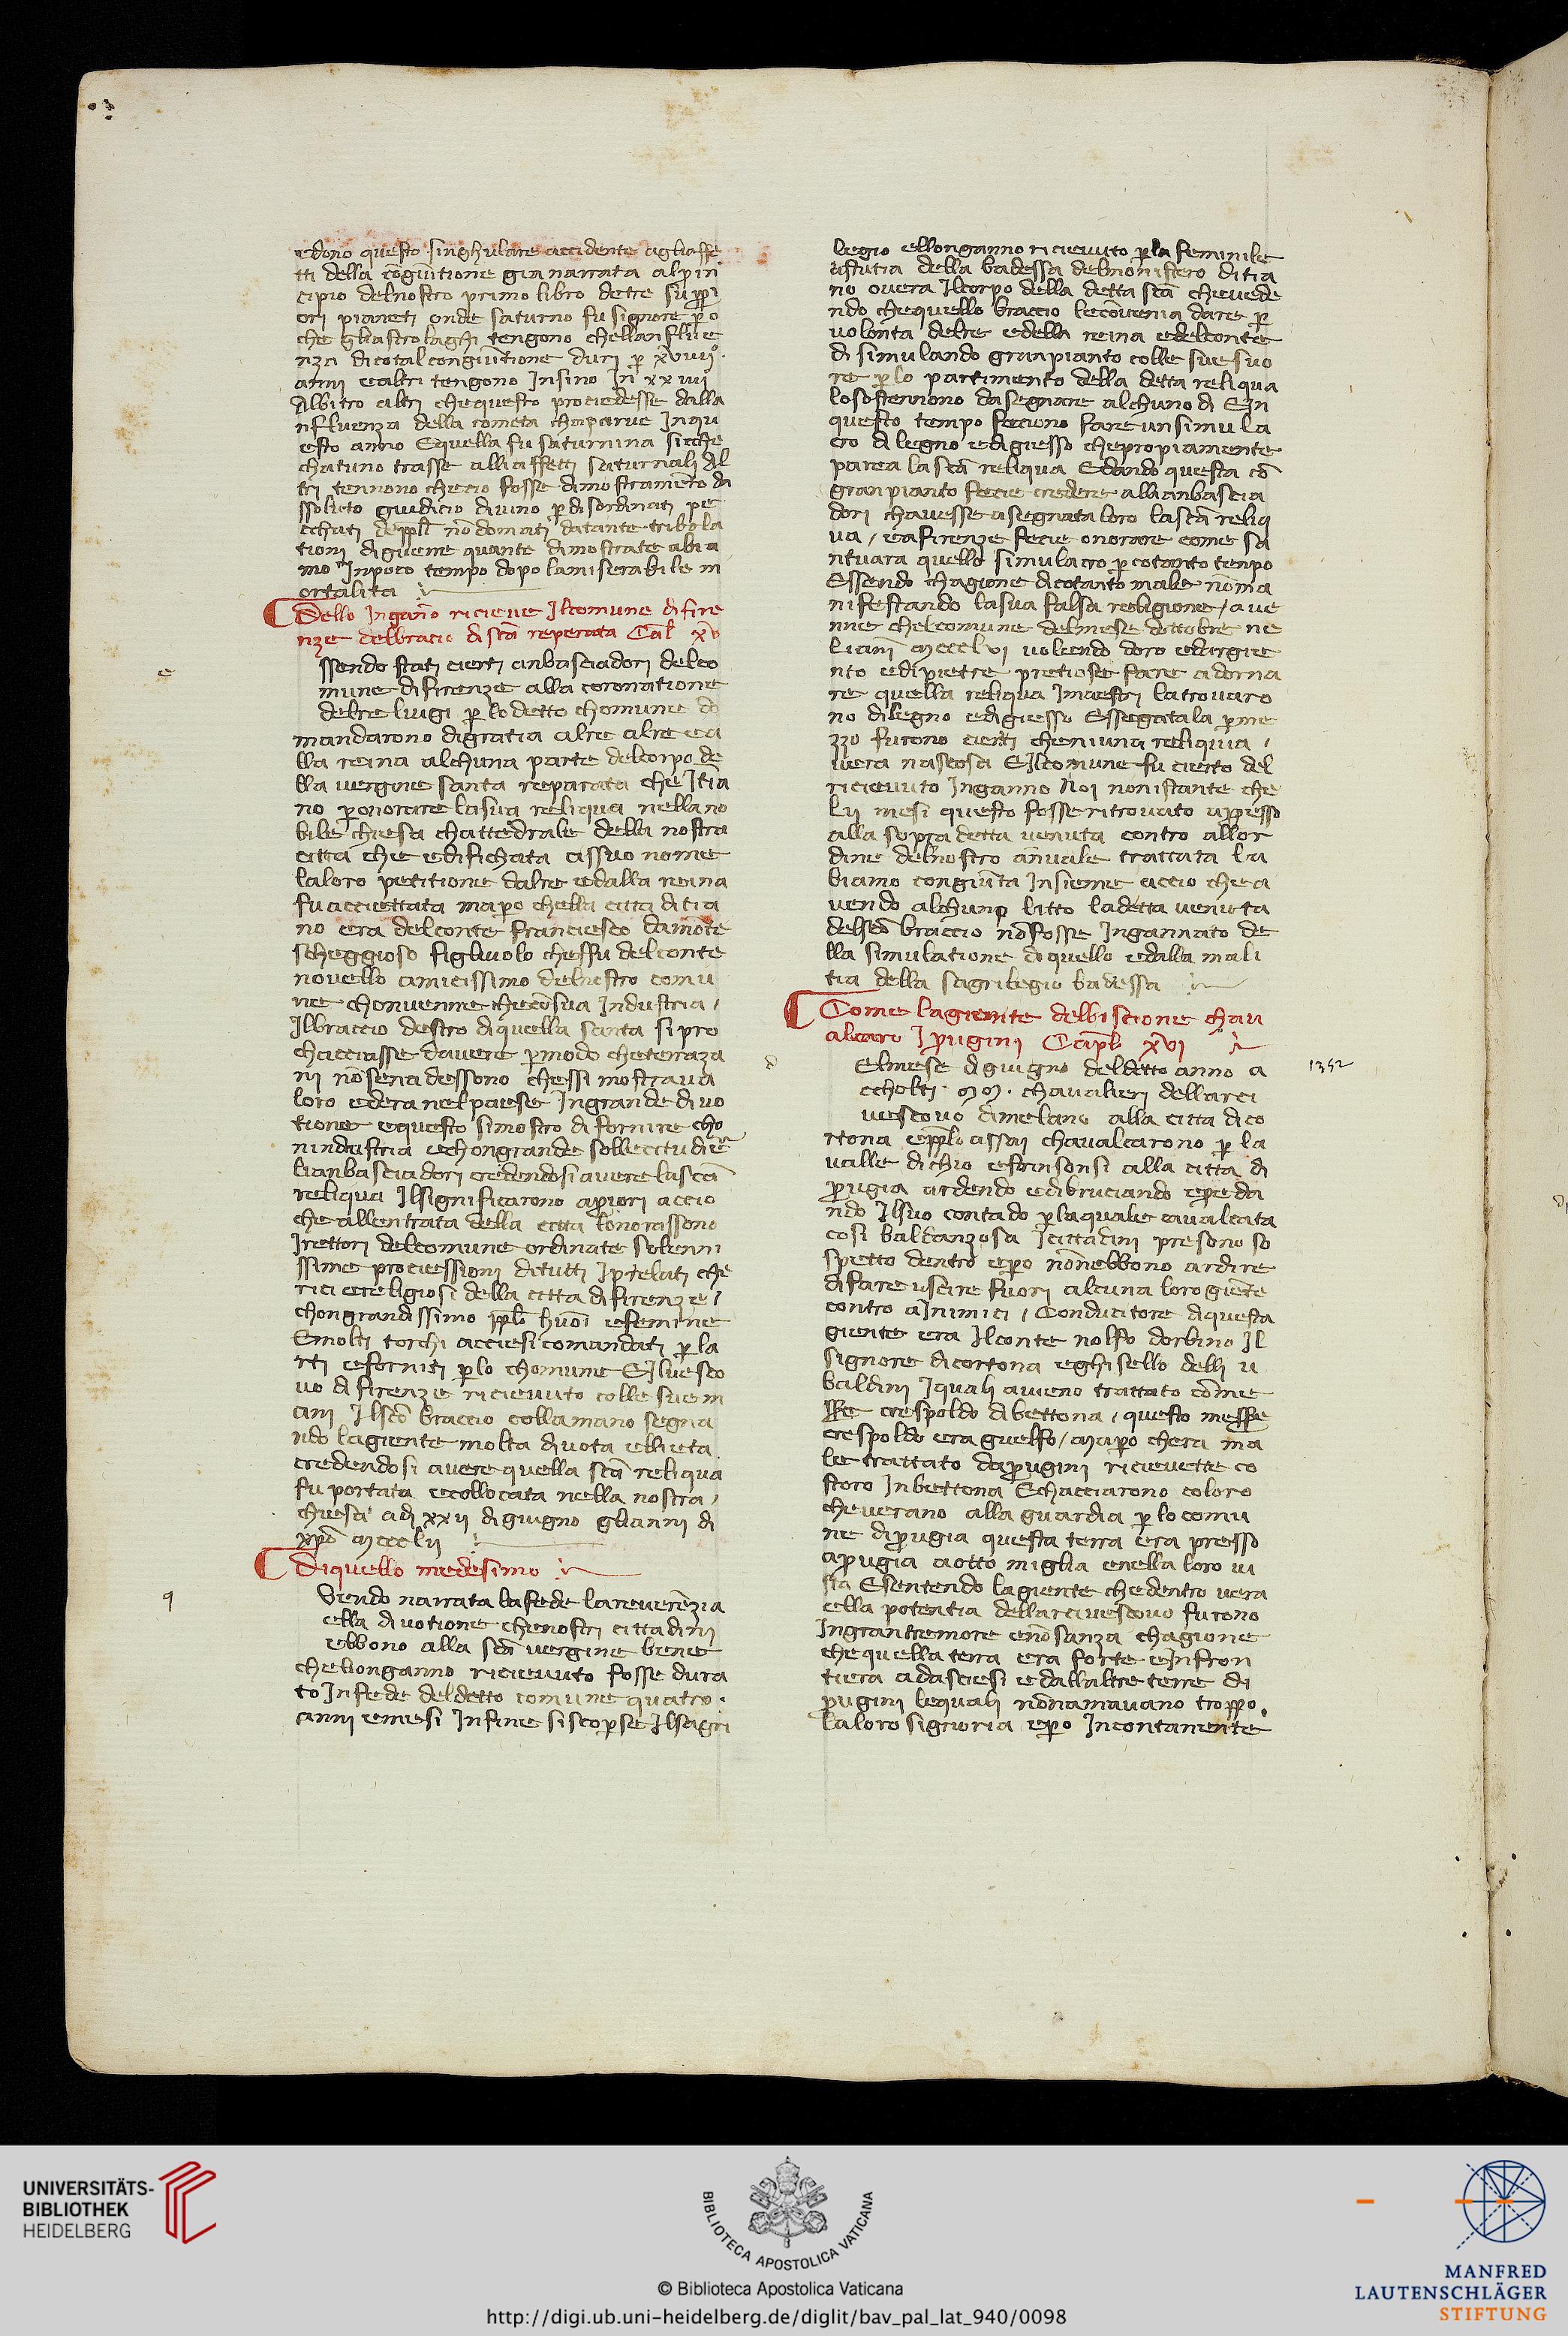 edono questo singhulare accidente agliaffe
tti della cōgiūtione gia narrata alprin
cipio delnostro primo libro detre suꝑi
ori pianeti onde saturno fu signore ꝑo
che gliastrolaghi tengono chellanflue
nza dicotal congiūtione duri ꝑ xviiii°
anni ealtri tengono Insino In xxiiii
Albitro altri chequesto prociedesse dalla
nfluenza della cometa chaparue Inqu
esto anno Equella fu saturnina sicche
chatuno trasse alliaffetti saturnali Al
tri tennono checio fosse dimostramēto da
ssoluto giudicio diuino ꝑ disordinati pe
cchati deppłi nō domati datante tribola
tioni diguerre quante dimostrate abia
mo Inpoco tempo dopo lamiserabile m
ortalita
Dello Inganō ricieve Ilcomune difire
nze delbracio di scā reperata Cał xv
e
ssendo stati cierti anbasciadori delco
mune difirenze alla coronatione
delre luigi ꝑ lo detto chomune do
mandarono digratia alre alre ea
lla reina alchuna parte delcorpo de
lla uergine santa reparata che Itia
no ꝑonorare lasua reliqua nellano
bile chiesa chattedrale della nostra
citta che edifichata assuo nome
laloro petitione dalre edalla reina
fu acciettata maꝑo chella citta ditia
no era delconte franciesco damōte
scheggioso figliuolo cheffu delconte
nouello amicissimo delnostro comu
ne chonuenne checōsua Industria /
Ilbraccio destro diquella santa si pro
chacciasse dauere ꝑmodo cheterraza
ni nōsena dessono chessi mostraua
loro edera nelpaese Ingrande diuo
tione equesto simostro di fornire cho
nindustria echongrande sollecitudīe
lianbasciadori credendosi auere lascā
reliqua Ilsignificarono apriori accio
che allentrata della citta lonorassono
Irettori delcomune ordinate solenni
ssime prociessioni ditutti Iprelati che
rici ereligiosi della citta di firenze /
chongrandissimo ppło huōi efemine
Emolti torchi acciesi comandati ꝑ la
rti eforniti ꝑlo chomune Eiluesco
uo di firenze riciewuto colle sue m
ani Ilscō braccio collamano segna
ndo lagiente molta diuota ellieta
credendosi auere quella scā reliqua
fu portata ecollocata nella nostra /
chiesa adi xxii digiugno glianni di
xpō mccclii
Diquello medesimo
q
Vendo narrata lafede lareuerēzia
ella diuotione chenostri cittadini
ebbono alla scā vergine bene
chelionganno riciewuto fosse dura
to Infede deldetto comune quatro
anni emesi Infine siscoꝑse Ilsagri
legio ellonganno riciewuto ꝑla feminile
astutia della badessa delmonistero ditia
no ouera Ilcorpo della detta scā chevede
ndo chequello braccio lecōuenia dare ꝑ
uolonta delre edella reina edelconte
di simulando granpianto colle sue suo
re ꝑlo partimento della detta reliqua
lo sostennono dasegnare alchuno di Ein
questo tempo feciono fare unsimula
cro di legno edigiesso chepropiamente
parea la scā reliqua Edando questa cō
granpianto fecie credere allianbascia
dori chauesse asegnata loro lascā reliq
ua / eafirenze fecie onorare come sa
ntuara quello simulacro ꝑ cotanto tenpo
Essendo chagione dicotanto male nōma
nifestando lasua falsa religione / aue
nne chelcomune delmese dottobre ne
lianni mccclvi uolendo doro edargie
nto edipietre pretiose fare adorna
re quella reliqua Imaestri latrouaro
no dilegno edigiesso Essegatala ꝑme
zzo furono cierti cheniuna reliquia /
uera nascosa Eilcomune fu cierto del
riciewuto Inganno Noi nonistante che
lii mesi questo fosse ritrouato appresso
alla sopra detta uenuta contro allor
dine delnostro añuale trattata la
biamo congiūta Insieme accio chea
uendo alchuno litto ladetta uenuta
delscō braccio nōfosse Ingannato de
lla simulatione diquello edalla mali
tia della sagrilegio badessa
Come lagiente delbiscione chau
alcaro Iprugini Capł xvi
d
Elmese digiugno deldetto anno a
1352
ccholti · mm · chaualieri dellarci
uescouo dimelano alla citta dico
rtona eppło assai chaualcarono ꝑ la
ualle dichio efrinsonsi alla citta di
ꝑugia ardendo edibruciando epreda
ndo Ilsuo contado ꝑlaquale caualcata
cosi baldanzosa Icittadini presono so
spetto dentro eꝑo nōnebbono ardire
difare uscire fuori alcuna loro giēte
contro aInimici / Conducitore diquesta
giente era Ilconte nolfo dorbino Il
signore dicortona eghisello delli u
baldini Iquali aueno trattato cōme
sse crespoldo dibettona / questo messe
crespoldo era guelfo / maꝑo chera ma
le trattato daꝑugini ricieuette co
storo Inbettona Echacciarono coloro
cheuerano alla guardia ꝑlo comu
ne diꝑugia questa terra era presso
aꝑugia aotto miglia enella loro ui
sta Esentendo lagiente chedentro vera
ella potentia dellarciuescouo furono
Ingrantremore enō sanza chagione
che quella terra era forte eInfron
tiera adasciesi edallaltre terre di
ꝑugini lequali nōnamauano troppo
laloro signoria eꝑo Incontanente
UNIVERSITÄTS-
BIBLIOTHEK
HEIDELBERG
BIBLIOTECA APOSTOLICA VATICANA
© Biblioteca Apostolica Vaticana
http://digi.ub.uni-heidelberg.de/diglit/bav_pal_lat_940/0098
MANFRED
LAUTENSCHLÄGER
STIFTUNG